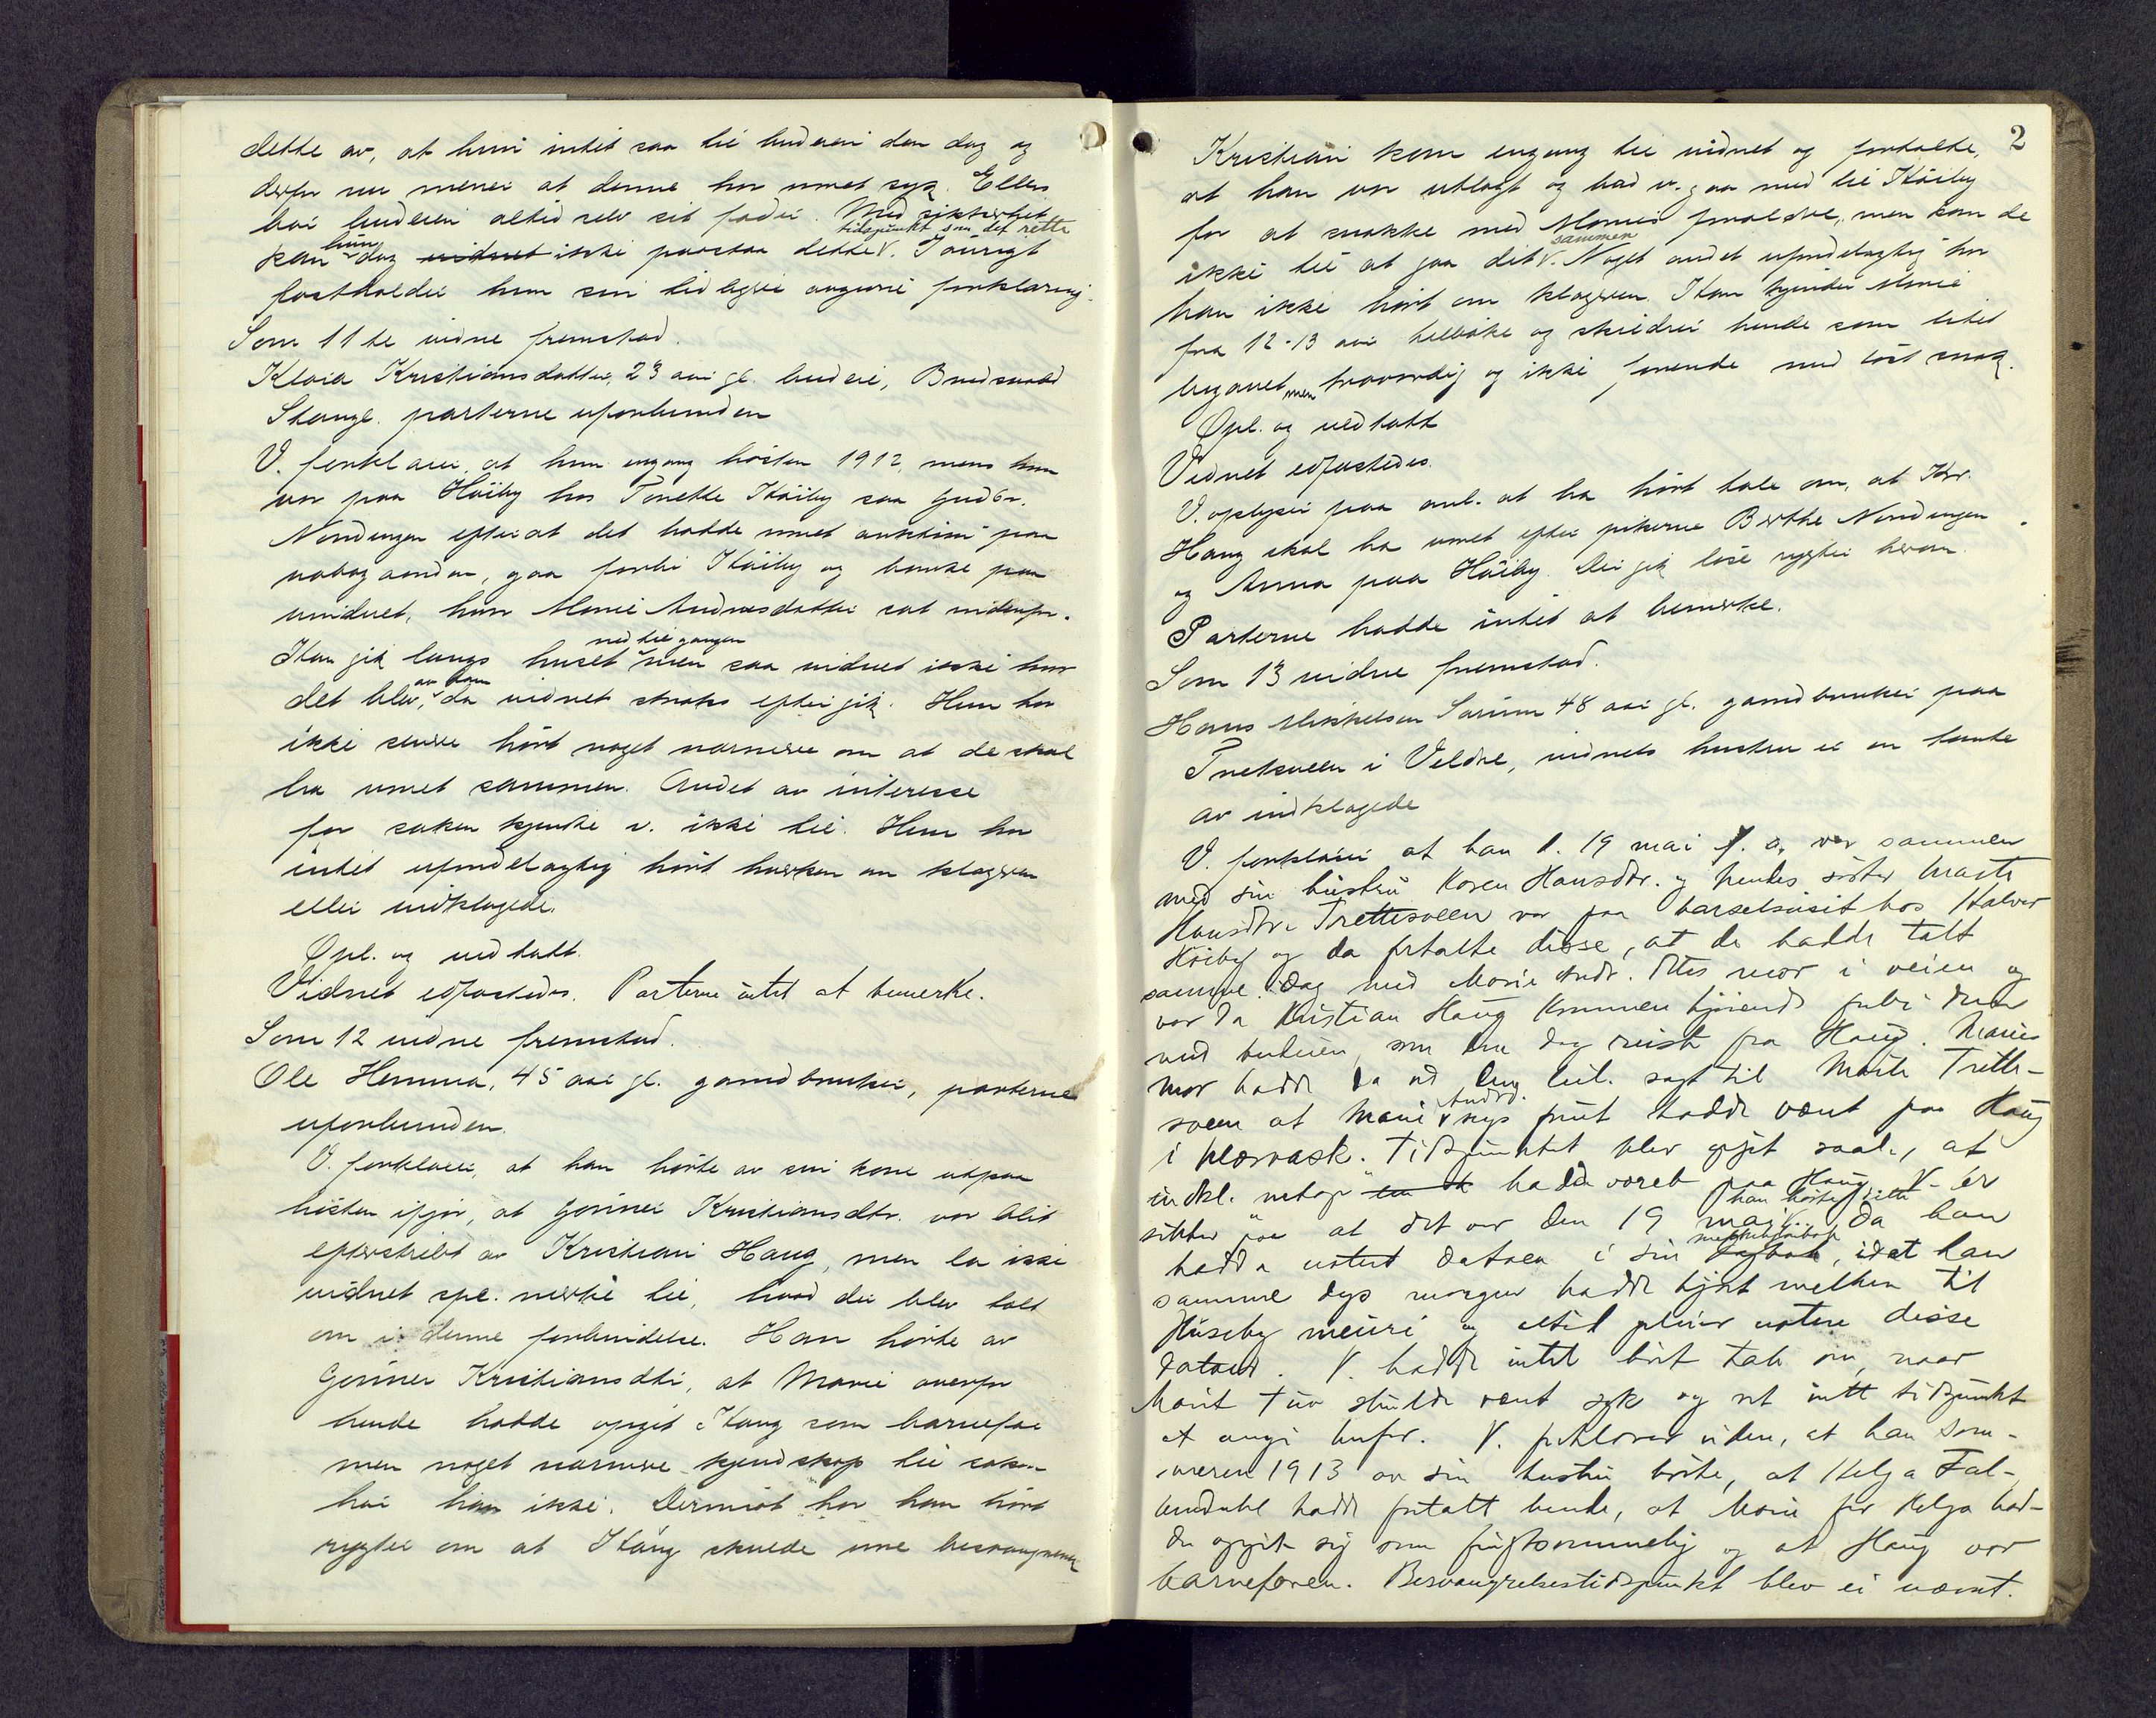 dette av, at hun intet saa til budeien den dag og
derfor nu mener at denne har været syk. Ellers
bar budeien altid selv sit foder. Med sikkerhet
kan hun dog vidnet ikke paastaa dette tidspunkt som det rette. Iøvrigt
fastholder hun sin tidligere avgivne forklaring.
Som 11te vidne fremstod.
Klara Kristiansdatter, 23 aar gl. budeie,
Stange. parterne uforbunden
V. forklarer, at hun engang høsten 1912, mens hun
var paa Høiby hos Tonette Høiby saa Gudbr.
Nordengen efterat det hadde været auktion paa
nabogaarden, gaa forbi Høiby og banke paa
vinduet, hvor Marie Andreasdatter sat indenfor.
Han gik langs huset ned til gangen men saa vidnet ikke hvor
det blev av ham, da vidnet straks efter gik. Hun har
ikke senere hørt noget nærmere om at de skal
ha været sammen. Andet av interesse
for saken kjente v. ikke til. Hun har
intet ufordelagtig hørt hverken om klagersken
eller indklagede.
Opl. og vedtatt.
Vidnet edfæstedes. Parterne intet at bemerke.
Som 12 vidne fremstod.
Ole Hemma, 45 aar gl. gaardbruker, parterne
uforbunden.
V. forklarer, at han hørte av sin kone utpaa
høsten ifjor, at Gunner Kristiansdtr. var blit
efterstribt av Kristian Haug, men la ikke
vidnet spe. merke til, hvad der blev talt
om i denne forbindelse. Han hørte av
Gunner Kristiansdtr, at Marie overfor
hende hadde opgit Haug som barnefar
men noget nærmere kjendskap til saken
har han ikke. Derimot har han hørt
rygter om at Haug skulde være besvangreren
2
Kristian kom engang til vidnet og fortalte,
at han var utlagt og bad v. gaa med til Høiby
for at snakke med Maries forældre, men kom de
ikke til at gaa dit sammen. Noget andet ufordelagtig har
han ikke hørt om klagersken. Han kjender Marie
fra 12-13 aar tilbake og skildrer hende som litet
begavet men troværdig og ikke farende med løst snak.
Opl. og vedtatt
Vidnet edfæstedes.
V. oplyser paa anl. at ha hørt tale om, at Kr.
Haug skal ha været efter pikerne Berthe Nordengen
og Anna paa Høiby. Der gik løse rygter herom.
Parterne hadde intet at bemerke.
Som 13 vidne fremstod.
Hans Mikkelsen 48 aar gl. gaardbruker paa
i Veldre, vidnets hustru er en tante
av indklagede
V. forklarer at han d. 19 mai f. a. var sammen
med sin hustru Karen Hansdtr. og hendes søster Marte
Hansdtr. Trettesveen var paa barselvisit hos Halvor
Høiby og da fortalte disse, at de hadde talt
samme dag med Marie Andr. dtrs mor i veien og
var da Kristian Haug kommen kjørende forbi dem
med budeien, som den dag reiste fra Haug. Maries
mor hadde da ved den leil. sagt til Marte Trette-
sveen at Marie Andrd. nys forut hadde vært paa Haug
i klæsvask. Tidspunktet blev opgit saal., at
indkl. netop hadde været paa Haug. V. er
sikker paa at det var den 19 mai han hørte dette, da han
hadde notert datoen i sin melkebok, idet han
samme dags morgen hadde kjørt melken til
Huseby meieri og altid pleier notere disse
datoer. V. hadde intet hørt tale om, naar
Marit skulde vært syk og vet intet tidspunkt
at angi herfor. V. forklarer viden, at han som-
meren 1913 av sin hustru hørte, at Helga Fal-
hadde fortalt hende, at Marie for Helga had-
de opgit sig som frugtsommelig og at Haug var
barnefaren. Besvangrelsestidspunkt blev ei nævnt.